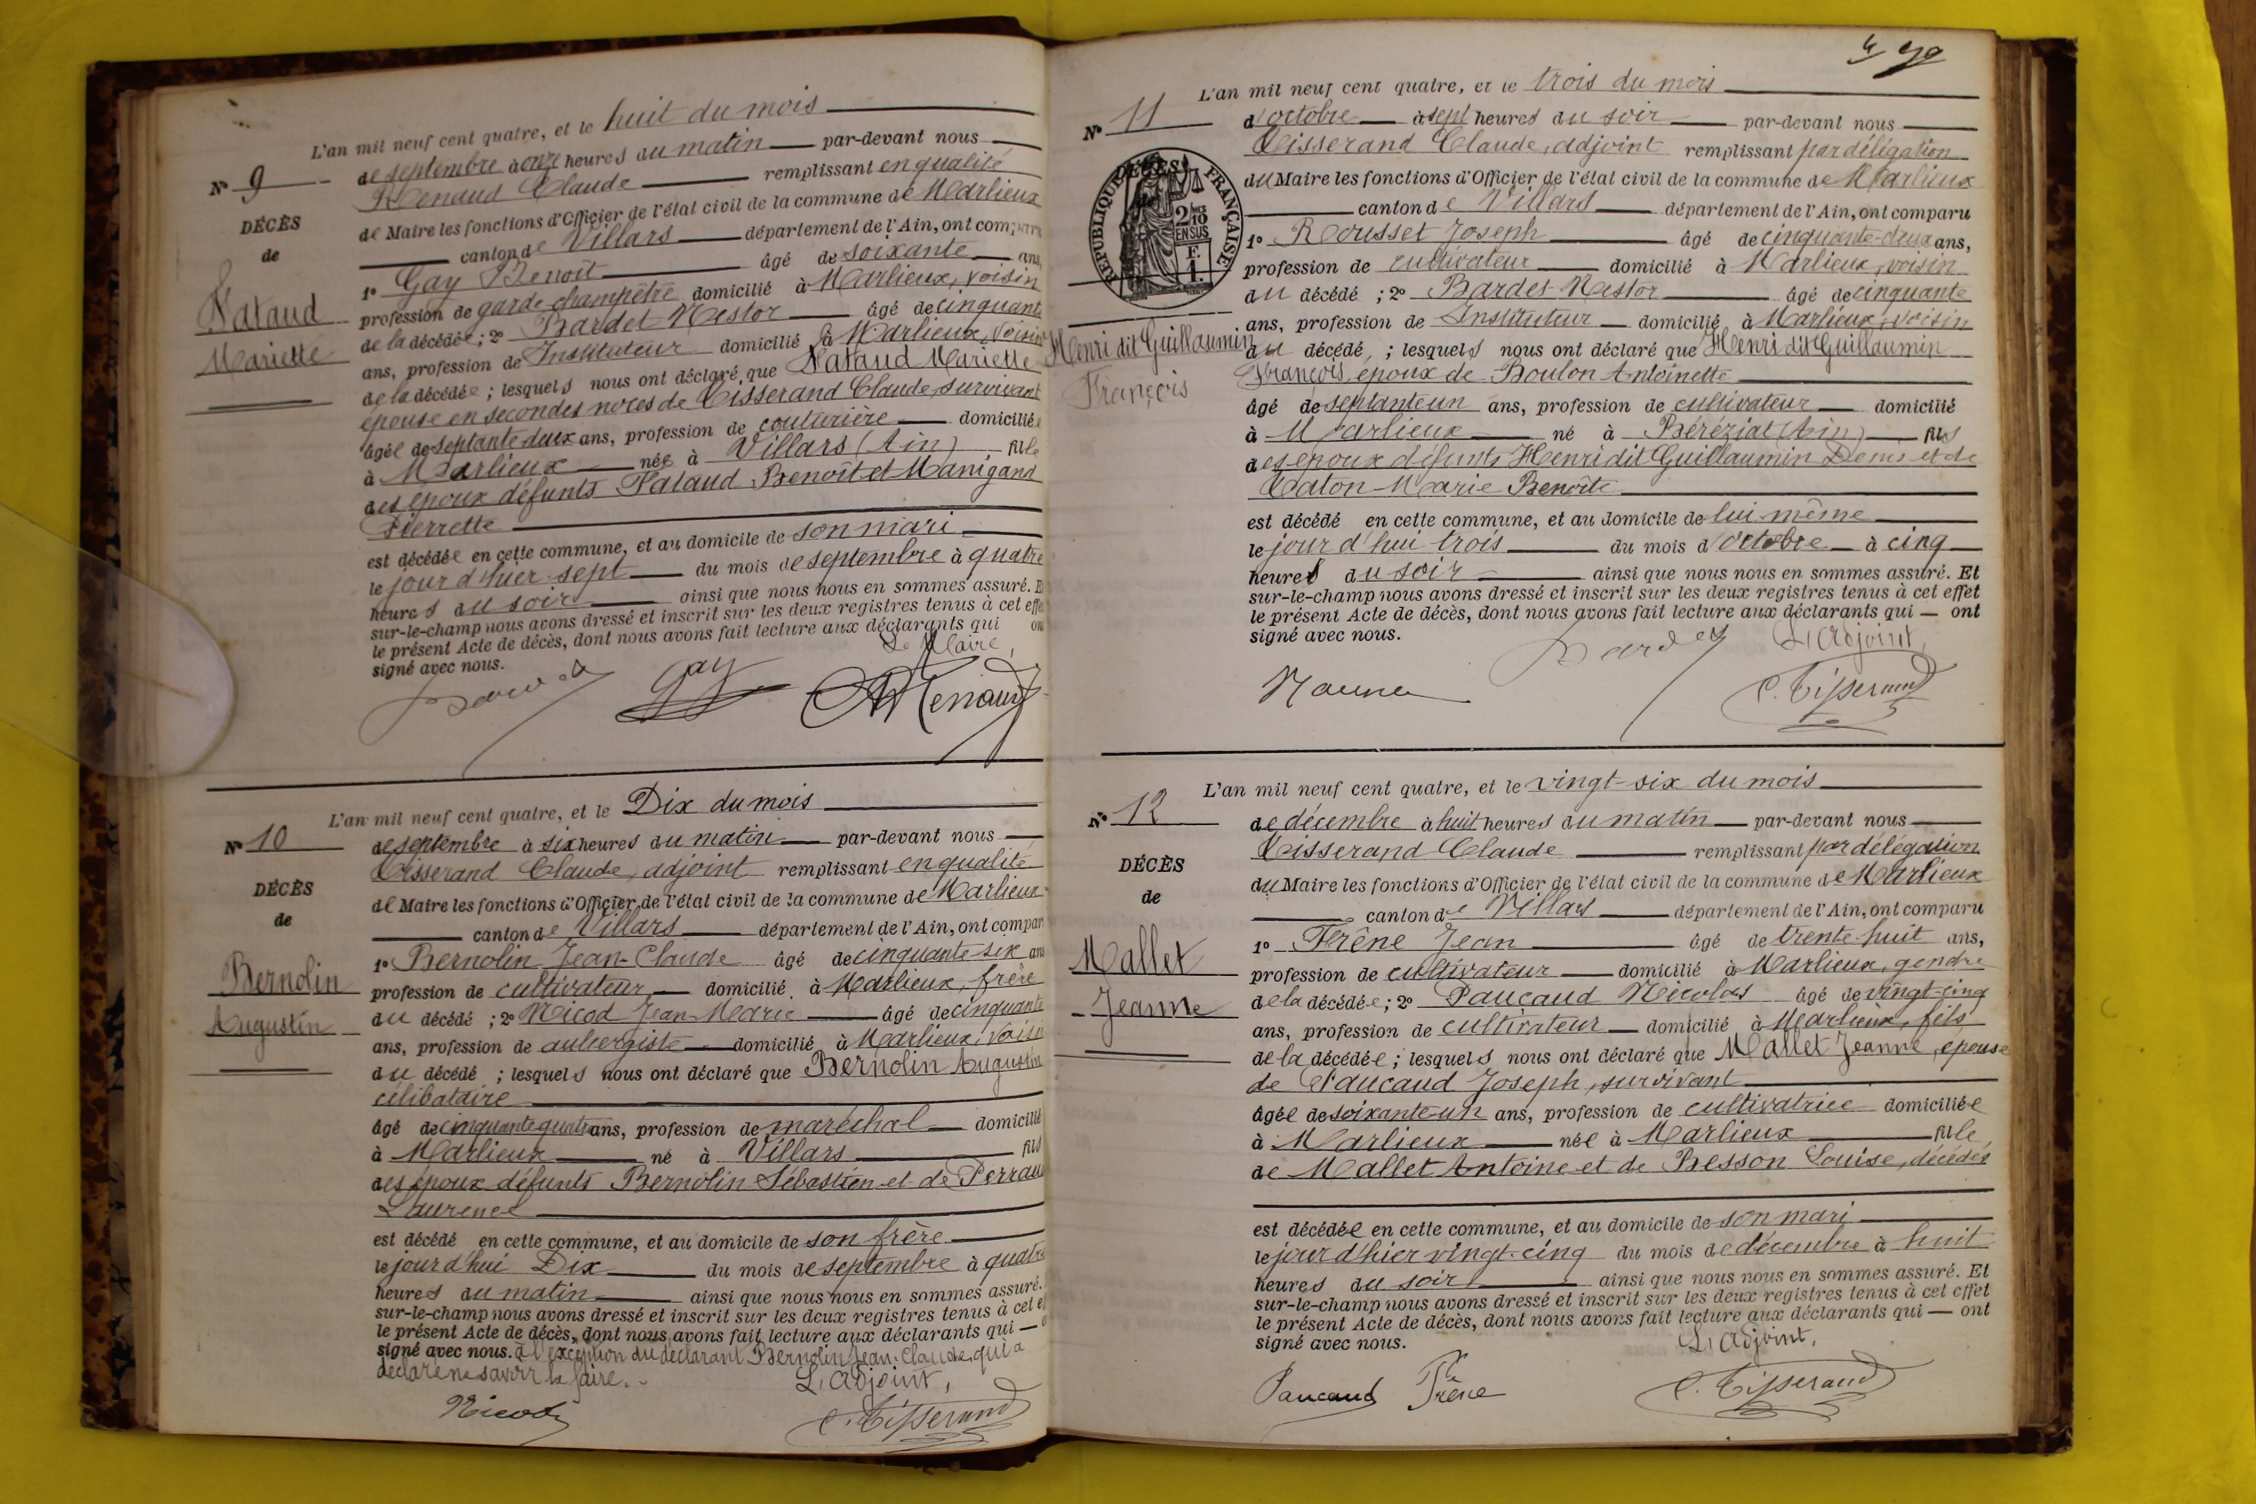 L'an mil neuf cent quatre, et le huit du mois
de septembre à onze heures du matin par-devant nous
Renaud Claude remplissant en qualité
de Maire les fonctions d'Officier de l'état civil de la commune de Marlieux
canton de Villars département de l'Ain, ont comparu
1º Gay Benoît âgé de soixante ans,
profession de garde-champêtre domicilié à Marlieux, voisin
de la décédée ; 2º Bardet Nestor âgé de cinquante
ans, profession de Instituteur domicilié à Marlieux, voisin
de la décédée ; lesquels nous ont déclaré que Pataud Mariette
épouse en secondes noces de Tisserand Claude, survivant
âgée de septante deux ans, profession de couturière domiciliée
à Marlieux née à Villars (Ain) fille
des époux défunts Pataud Benoît et Manigand
Pierrette
est décédée en cette commune, et au domicile de son mari
le jour d'hier sept du mois de septembre à quatre
heures du soir ainsi que nous nous en sommes assuré. E
sur-le-champ nous avons dressé et inscrit sur les deux registres tenus à cet effe
le présent Acte de décès, dont nous avons fait lecture aux déclarants qui on
signé avec nous.
Le Maire,
Bardet Gay Renaud
Nº 9
DÉCÈS
de
Pataud
Mariette
L'an mil neuf cent quatre, et le Dix du mois
de septembre à six heures du matin par-devant nous
Tisserand Claude, adjoint remplissant en qualité
de Maire les fonctions d'Officier de l'état civil de la commune de Marlieux
canton de Villars département de l'Ain, ont compar
1º Bernolin Jean-Claude âgé de cinquante-six ans
profession de cultivateur domicilié à Marlieux, frère
du décédé ; 2º Nicod Jean-Marie âgé de cinquante
ans, profession de aubergiste domicilié à Marlieux, voisin
du décédé ; lesquels nous ont déclaré que Bernolin Augustin
célibataire
âgé de cinquante quatre ans, profession de maréchal domicilié
à Marlieux né à Villars fils
des époux défunts Bernolin Sébastien et de Perraud
Laurence
est décédé en cette commune, et au domicile de son frère
le jour d'hui Dix du mois de septembre à quatre
heures du matin ainsi que nous nous en sommes assuré.
sur-le-champ nous avons dressé et inscrit sur les deux registres tenus à cet e
le présent Acte de décès, dont nous avons fait lecture aux déclarants qui — o
signé avec nous. à l'exception du déclarant Bernolin Jean-Claude, qui a
déclaré ne savoir le faire.
L'adjoint,
Nicod C. Tisserand
Nº 10
DÉCÈS
de
Bernolin
Augustin
L'an mil neuf cent quatre, et le trois du mois
d'octobre à sept heures du soir par-devant nous
Tisserand Claude, adjoint remplissant par délégation
du Maire les fonctions d'Officier de l'état civil de la commune de Marlieux
canton de Villars département de l'Ain, ont comparu
1º Rousset Joseph âgé de cinquante-deux ans,
profession de cultivateur domicilié à Marlieux, voisin
du décédé ; 2º Bardet Nestor âgé de cinquante
ans, profession de Instituteur domicilié à Marlieux, voisin
du décédé, ; lesquels nous ont déclaré que Henri dit Guillaumin
François, époux de Boulon Antoinette
âgé de septante un ans, profession de cultivateur domicilié
à Marlieux né à Béréziat (Ain) fils
des époux défunts Henri dit Guillaumin Denis et de
Caton Marie Benoîte
est décédé en cette commune, et au domicile de lui-même
le jour d'hui trois du mois d'octobre à cinq
heures du soir ainsi que nous nous en sommes assuré. Et
sur-le-champ nous avons dressé et inscrit sur les deux registres tenus à cet effet
le présent Acte de décès, dont nous avons fait lecture aux déclarants qui — ont
signé avec nous.
L'adjoint,
Bardet C. Tisserand
Nº 11
DÉCÈS
de
RÉPUBLIQUE FRANÇAISE
2/10 EN SUS
F. 1.
Henri dit Guillaumin
François
L'an mil neuf cent quatre, et le vingt-six du mois
de décembre à huit heures du matin par-devant nous
Tisserand Claude remplissant par délégation
du Maire les fonctions d'Officier de l'état civil de la commune de Marlieux
canton de Villars département de l'Ain, ont comparu
1º Frêne Jean âgé de trente-huit ans,
profession de cultivateur domicilié à Marlieux, gendre
de la décédée ; 2º Paucaud Nicolas âgé de vingt-cinq
ans, profession de cultivateur domicilié à Marlieux, fils
de la décédée ; lesquels nous ont déclaré que Mallet Jeanne, épouse
de Paucaud Joseph, survivant
âgée de soixante-un ans, profession de cultivatrice domiciliée
à Marlieux née à Marlieux fille
de Mallet Antoine et de Besson Louise, décédés
est décédée en cette commune, et au domicile de son mari
le jour d'hier vingt-cinq du mois de décembre à huit
heures du soir ainsi que nous nous en sommes assuré. Et
sur-le-champ nous avons dressé et inscrit sur les deux registres tenus à cet effet
le présent Acte de décès, dont nous avons fait lecture aux déclarants qui — ont
signé avec nous.
L'adjoint,
Paucaud Frêne C. Tisserand
Nº 12
DÉCÈS
de
Mallet
Jeanne